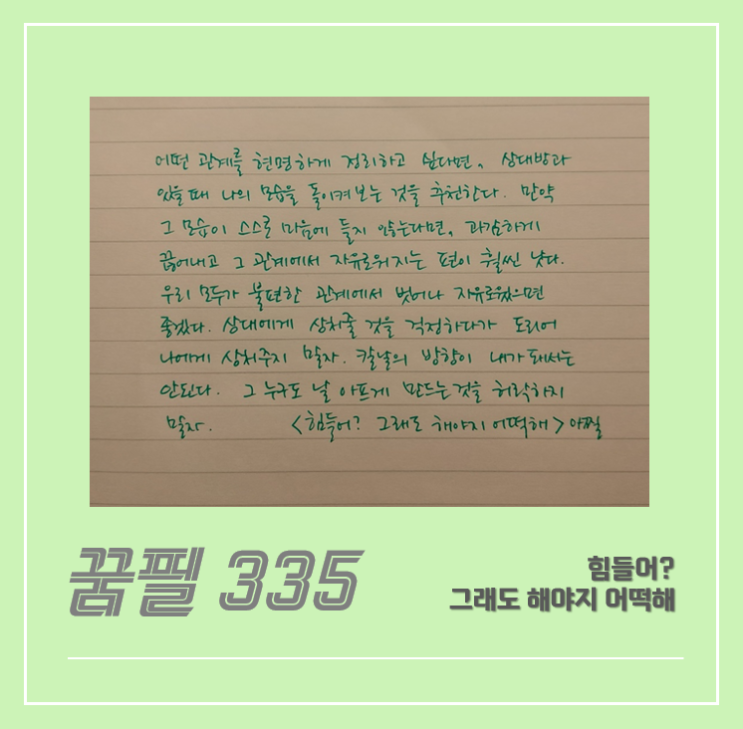 어떤 관계를 현명하게 정리하고 싶다면, 상대방과
있을 때 나의 모습을 돌이켜보는 것을 추천한다. 만약
그 모습이 스스로 마음에 들지 않는다면, 과감하게
끊어내고 그 관계에서 자유로워지는 편이 훨씬 낫다.
우리 모두가 불편한 관계에서 벗어나 자유로웠으면
좋겠다. 상대에게 상처줄 것을 걱정하다가 도리어
나에게 상처주지 말자. 칼날의 방향이 내가 돼서는
안된다. 그 누구도 날 아프게 만드는 것을 허락하지
말자. <힘들어? 그래도 해야지 어떡해> 아찔
꿈필 335
힘들어?
그래도 해야지 어떡해